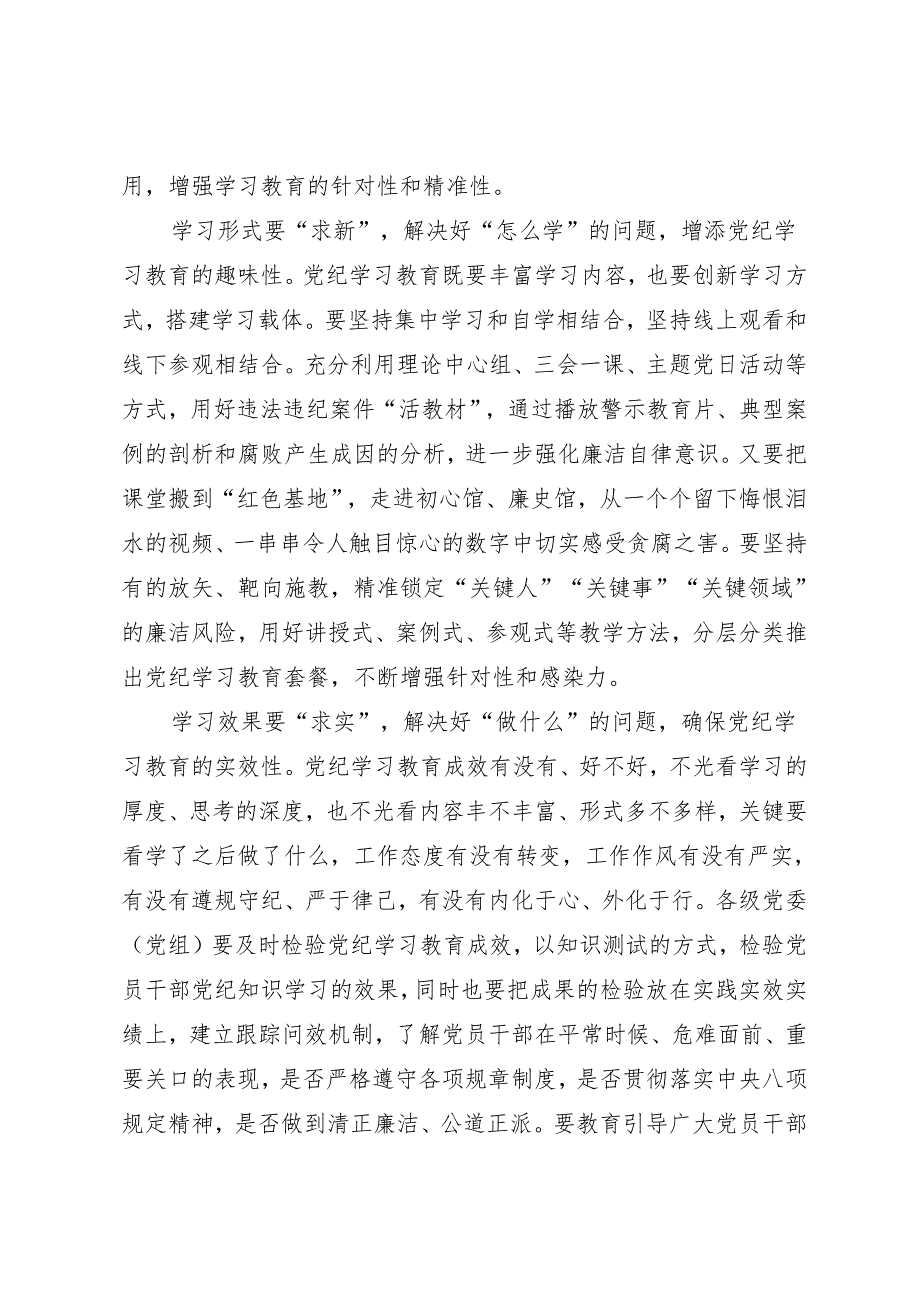 用，增强学习教育的针对性和精准性。
学习形式要“求新”，解决好“怎么学”的问题，增添党纪学
习教育的趣味性。党纪学习教育既要丰富学习内容，也要创新学习方
式，搭建学习载体。要坚持集中学习和自学相结合，坚持线上观看和
线下参观相结合。充分利用理论中心组、三会一课、主题党日活动等
方式，用好违法违纪案件“活教材”，通过播放警示教育片、典型案
例的剖析和腐败产生成因的分析，进一步强化廉洁自律意识。又要把
课堂搬到“红色基地”，走进初心馆、廉史馆，从一个个留下悔恨泪
水的视频、一串串令人触目惊心的数字中切实感受贪腐之害。要坚持
有的放矢、靶向施教，精准锁定“关键人”“关键事”“关键领域”
的廉洁风险，用好讲授式、案例式、参观式等教学方法，分层分类推
出党纪学习教育套餐，不断增强针对性和感染力。
学习效果要“求实”，解决好“做什么”的问题，确保党纪学
习教育的实效性。党纪学习教育成效有没有、好不好，不光看学习的
厚度、思考的深度，也不光看内容丰不丰富、形式多不多样，关键要
看学了之后做了什么，工作态度有没有转变，工作作风有没有严实，
有没有遵规守纪、严于律己，有没有内化于心、外化于行。各级党委
（党组）要及时检验党纪学习教育成效，以知识测试的方式，检验党
员干部党纪知识学习的效果，同时也要把成果的检验放在实践实效实
绩上，建立跟踪问效机制，了解党员干部在平常时候、危难面前、重
要关口的表现，是否严格遵守各项规章制度，是否贯彻落实中央八项
规定精神，是否做到清正廉洁、公道正派。要教育引导广大党员干部